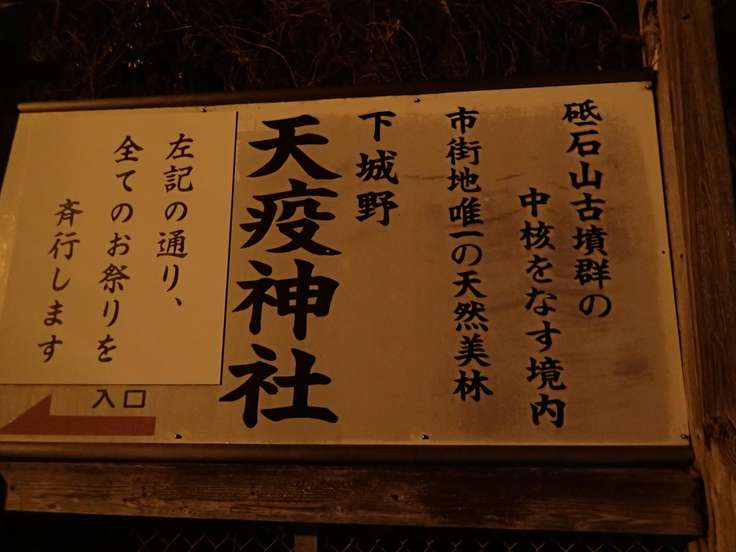 砥石山古墳群の
中核をなす境内
市街地唯一の天然美林
下城野
天疫神社
左記の通り、
全てのお祭りを
斉行します
入口